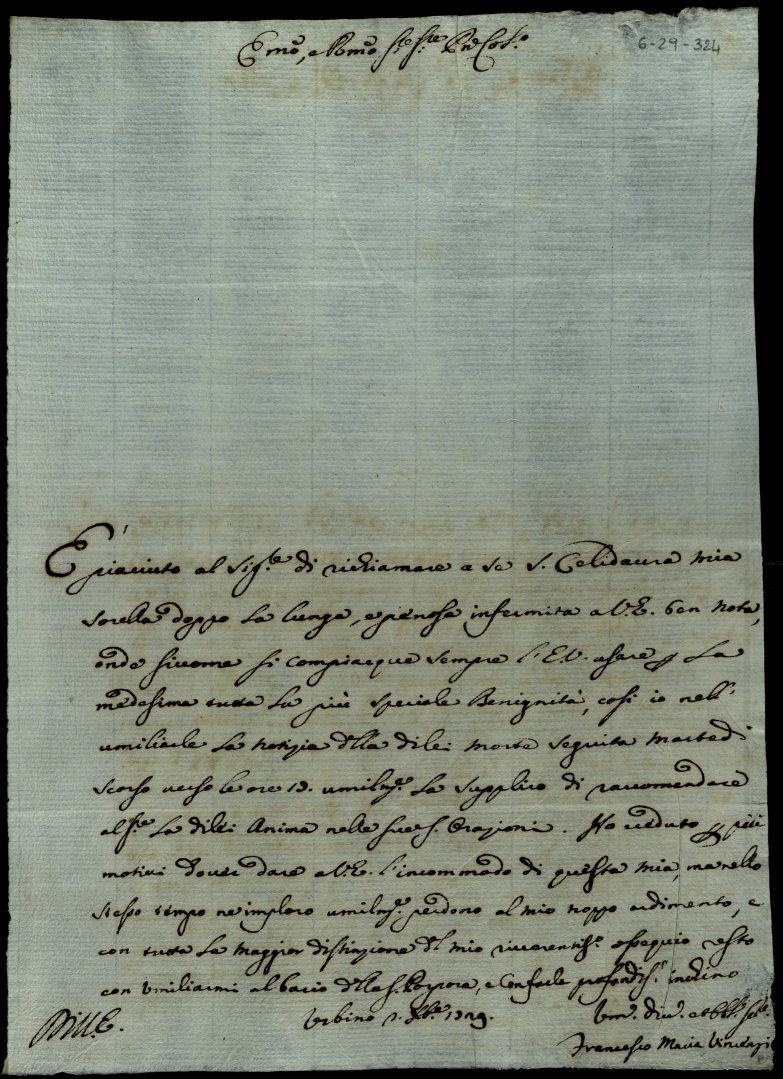 Emo, e Rmo Sre Sre Pne Colo
6-29-324
È piaciuto al Sigre di richiamare a se S. Celidaura mia
sorella doppo la lunga, e penosa infermità a V.E. ben nota,
onde siccome si compiacque sempre l'E.V. usare p la
medesima tutta la più speciale Benignità, così io nell'
umiliarle la notizia dlla di lei morte seguita martedì
scorso verso le ore 19. umilmte la supplico di raccomandare
al Sre la di lei Anima nelle sue S. Orazioni. Ho creduto p più
motivi dover dare a V.E. l'incommodo di questa mia, ma nello
stesso tempo ne imploro umilmte perdono al mio troppo ardimento, e
con tutta la maggior distinzione dl mio riverentismo ossequio resto
con umiliarmi al bacio dlla S. Porpora, e con farle profondismo inchino
Di V.E. Urbino 1729. Umo Divo ed Obbmo Sre
Francesco Maria Vincenzi